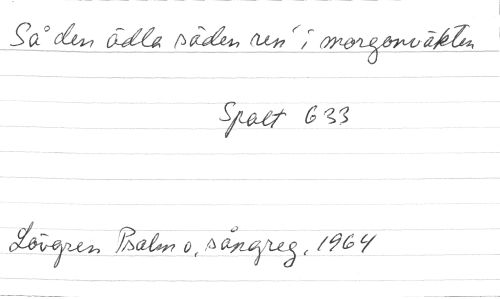 Så den ädla säden ren' i morgonväkten
Spalt 633
Lövgren Psalm o. sångreg. 1964